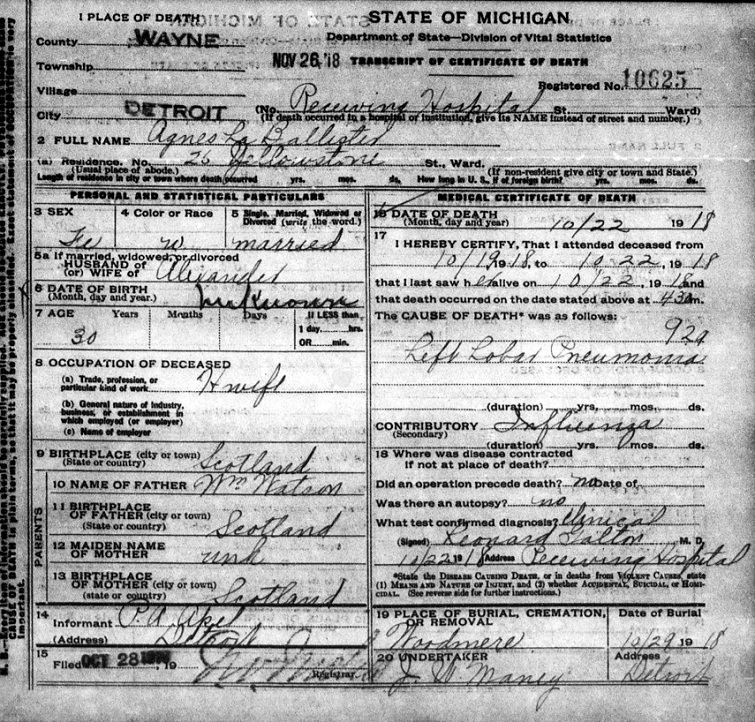 1 PLACE OF DEATH
STATE OF MICHIGAN
County WAYNE
Department of State—Division of Vital Statistics
Township
NOV 26,'18 TRANSCRIPT OF CERTIFICATE OF DEATH
Village
Registered No. 10625
City DETROIT (No. Receiving Hospital St. Ward)
(If death occurred in a hospital or institution, give its NAME instead of street and number.)
2 FULL NAME Agnes La Ballister
(a) Residence. No. 26 Yellowstone St., Ward.
(Usual place of abode.) (If non-resident give city or town and State.)
Length of residence in city or town where death occurred yrs. mos. ds. How long in U. S., if of foreign birth? yrs. mos. ds.
PERSONAL AND STATISTICAL PARTICULARS
3 SEX Fe
4 Color or Race w
5 Single, Married, Widowed or Divorced (write the word.) married
5a If married, widowed, or divorced
HUSBAND of
(or) WIFE of Alexander
6 DATE OF BIRTH
(Month, day and year.) unknown
7 AGE Years Months Days If LESS than
30 1 day......hrs.
OR......min.
8 OCCUPATION OF DECEASED
(a) Trade, profession, or
particular kind of work Hwife
(b) General nature of industry,
business, or establishment in
which employed (or employer)
(c) Name of employer
9 BIRTHPLACE (city or town)
(State or country) Scotland
PARENTS
10 NAME OF FATHER Wm Watson
11 BIRTHPLACE
OF FATHER (city or town)
(State or country) Scotland
12 MAIDEN NAME
OF MOTHER unk
13 BIRTHPLACE OF
MOTHER (city or town)
(state or country) Scotland
14
Informant P. A.
(Address) Detroit
15
Filed OCT 28 , 19
Registrar.
MEDICAL CERTIFICATE OF DEATH
16 DATE OF DEATH
(Month, day and year) 10/22 1918
17
I HEREBY CERTIFY, That I attended deceased from
10/19, 1918, to 10-22, 1918
that I last saw her alive on 10/22, 1918, and
that death occurred on the date stated above at 430 m.
The CAUSE OF DEATH* was as follows:
92a
Left Lobar Pneumonia
(duration) yrs. mos. ds.
CONTRIBUTORY Influenza
(Secondary)
(duration) yrs. mos. ds.
18 Where was disease contracted
if not at place of death?
Did an operation precede death? no Date of
Was there an autopsy? no
What test confirmed diagnosis? Clinical
(Signed) Leonard M. D.
10/22 1918 Address Receiving Hospital
*State the DISEASE CAUSING DEATH, or in deaths from VIOLENT CAUSES, state
(1) MEANS AND NATURE OF INJURY, and (2) whether ACCIDENTAL, SUICIDAL, or HOMI-
CIDAL. (See reverse side for further instructions.)
19 PLACE OF BURIAL, CREMATION,
OR REMOVAL
Woodmere
Date of Burial
10/29 1918
20 UNDERTAKER
J. W. Maney
Address
Detroit